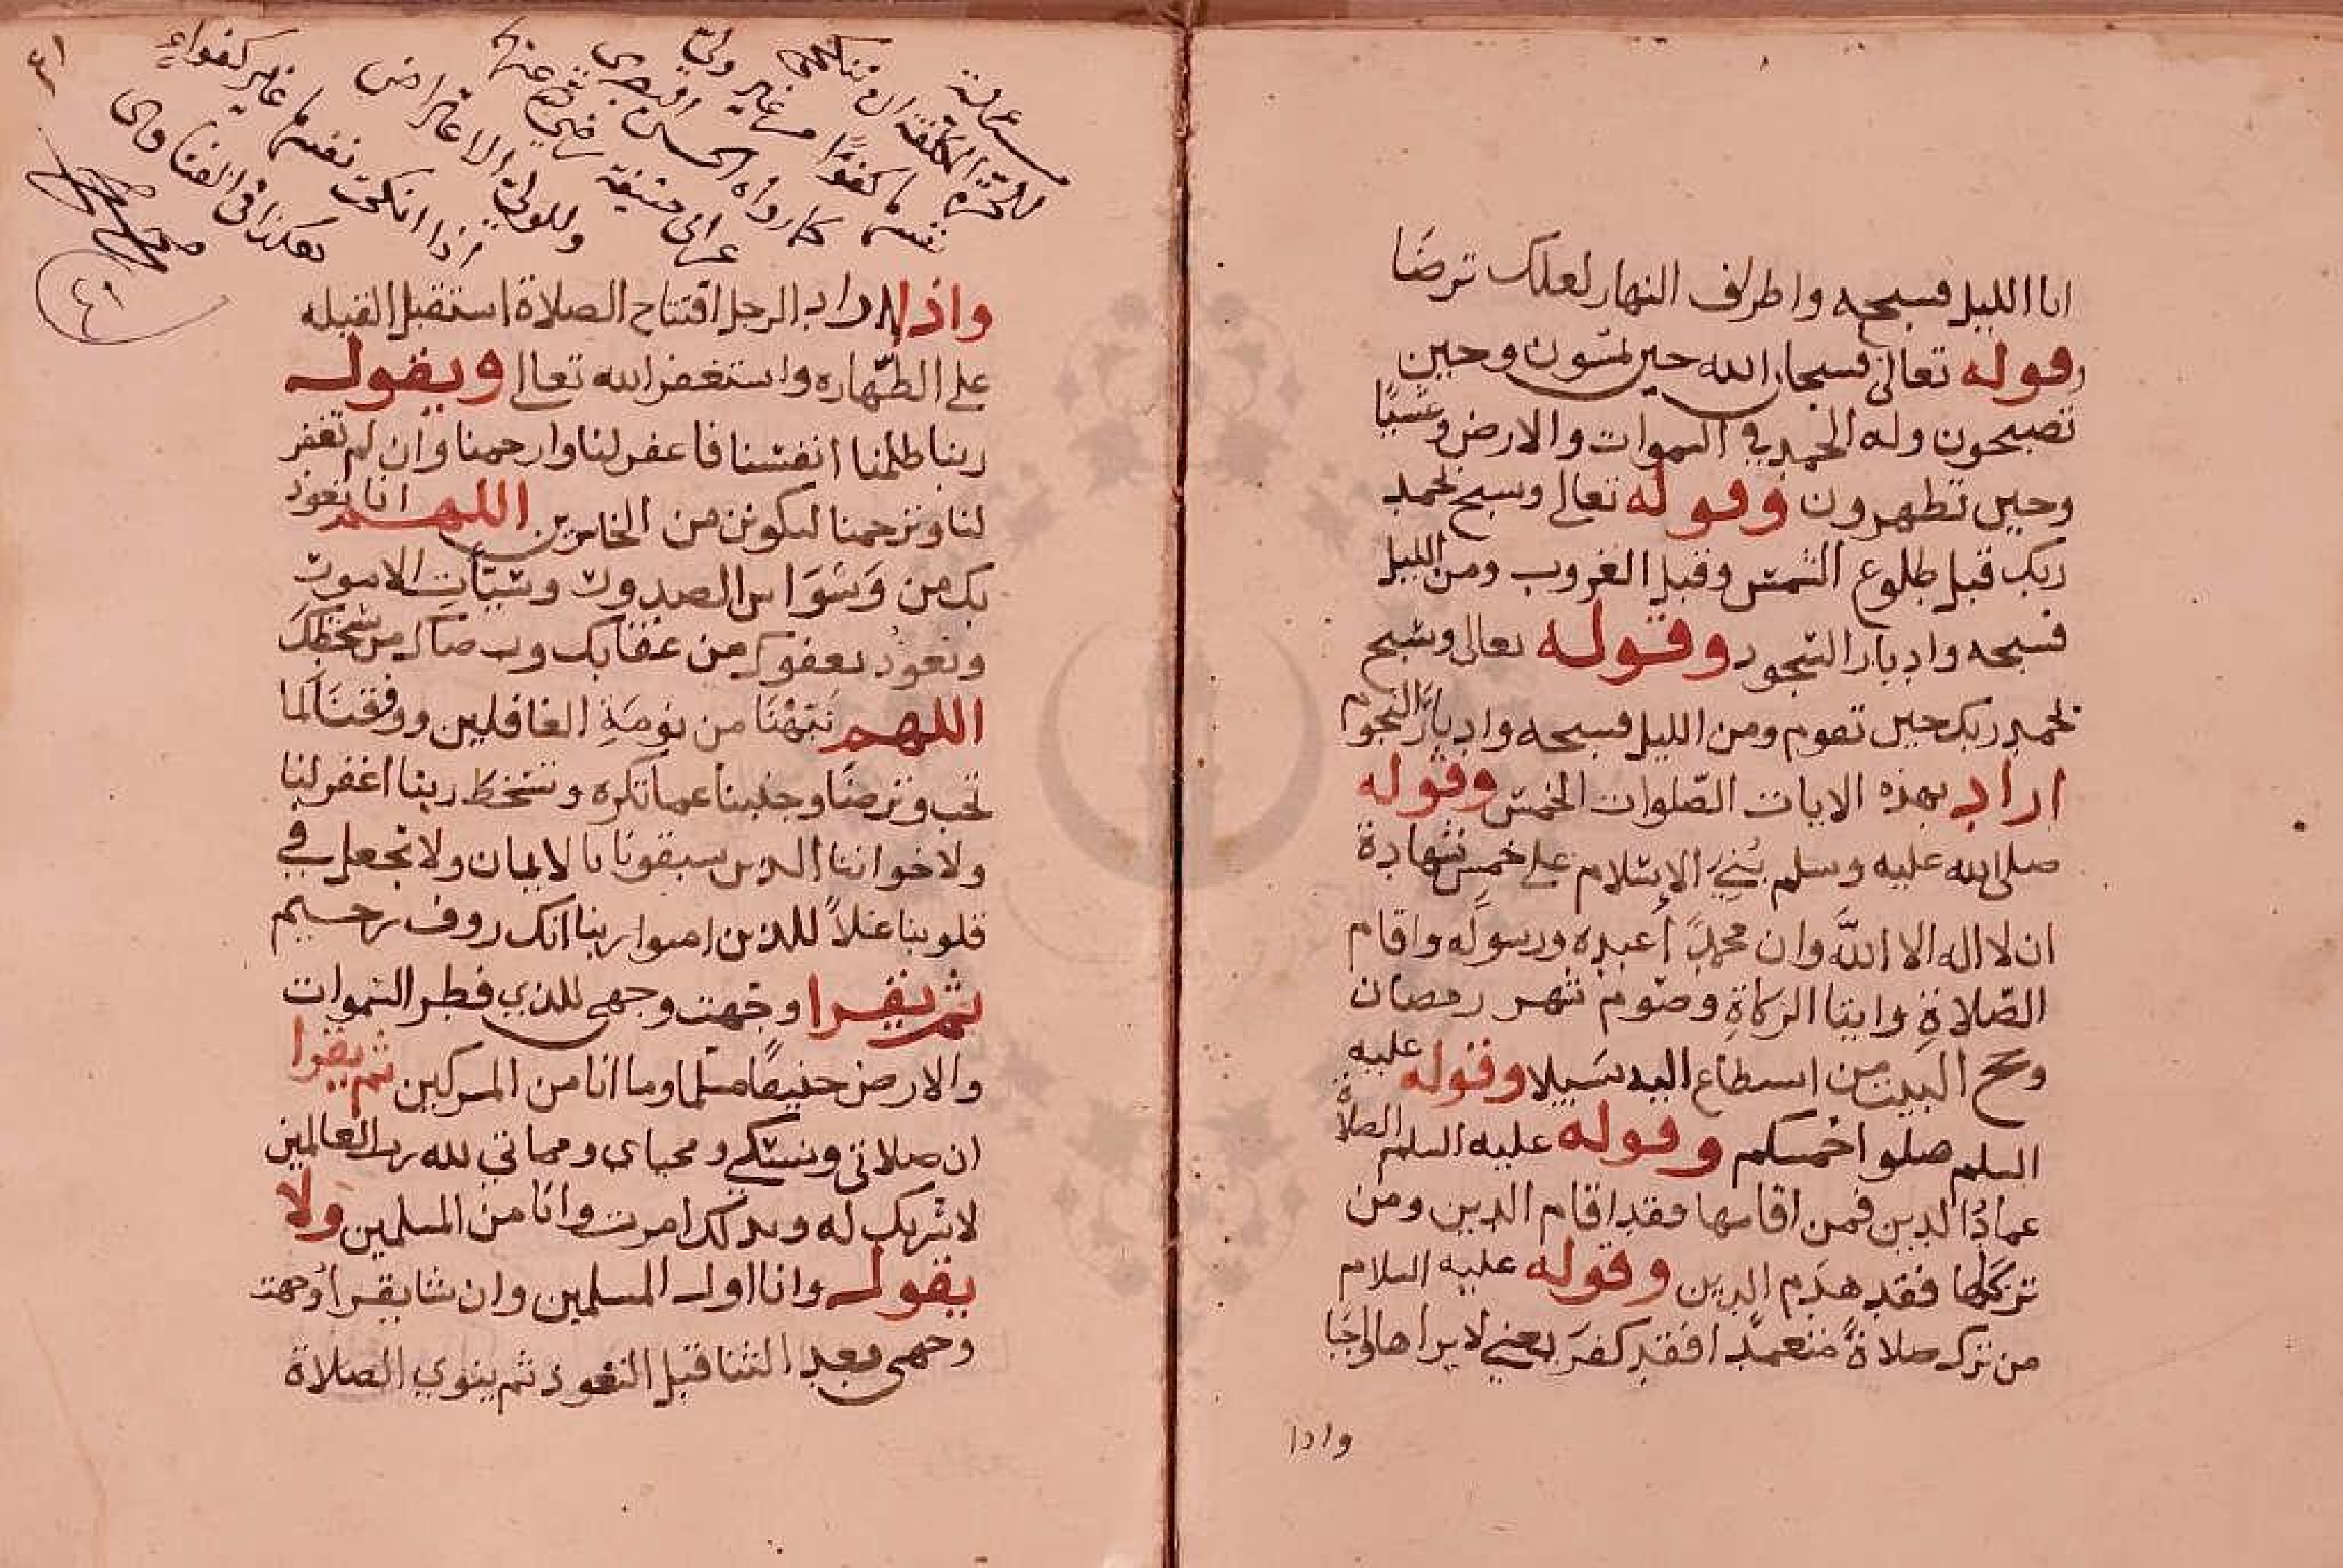 اناالليل فسبحه واطراف النهار لعلك ترضَا
وقوله تعالى فسبحان الله حين تمسون وحين
تصبحون وله الحمد في السموات والارض وعشيًا
وحين تظهرون وقوله تعالى وسبح بحمد
ربك قبل طلوع الشمس وقبل الغروب ومن الليل
فسبحه وادبار السجود وقوله تعالى وسبح
بحمد ربك حين تقوم ومن الليل فسبحه وادبارَ النجوم
اراد بهذه الايات الصّلوات الخمس وقوله
صلى الله عليه وسلم بُنيَ الاسلام على خمسٍ شهادة
ان لا اله الا اللهَ وان محمدًا عبده ورسوله واقام
الصّلاةِ وايتا الزكاةِ وصَوم شهر رمضان
وحج البيت من استطاع اليه سَبيلا وقوله عليه
السلم صلوا خمسكم وقوله عليه السلم الصلاة
عمادُ الدين فمن اقامها فقد اقام الدين ومن
تركها فقد هدَم الدين وقوله عليه السلام
من ترك صلاةً متعمدًا فقد كفرَ يعني لا يراها واجبًا
واذا
٤١
مسئلة
للحرة المكلفة ان تنكح
نفسها كفوًا من غير ولي
كما رواه الحسن
عن ابي حنيفة رضي
وللولي الاعتراض
اذا انكحت نفسها غير كفواءٍ
هكذا في الفتاوى
٤١
واذا اراد الرجل افتتاح الصلاة استقبل القبله
على الطّهاره واستغفر الله تعالى ويقول
ربنا ظلمنا انفسنا فاغفر لنا وارحمنا وان لم تغفر
لنا وترحمنا لنكونن من الخاسرين اللهم انا نعوذ
بك من وَسْوَاس الصدور وسَيّاتِ الامور
ونعوذ بعفوك من عقابك وبرضاك من سَخَطِكَ
اللهم نبّهْنَا من نومَةِ الغافلين ووفقنَا لما
تحب وترضَا وجنبنا عما تكره وتسخط ربنا اغفر لنا
ولاخواننا الذين سبقونا بالايمان ولا تجعل في
قلوبنا غلاً للذين امنوا ربنا انك روف رحيم
ثم يقرا وجّهت وجهي للذي فطر السَموات
والارض حنيفًا مسلما وما انا من المشركين ثم يقرا
ان صلاتي ونسكي ومحياي ومماتي لله رب العالمين
لا شريك له وبذلك امرت وانَا من المسلمين ولا
يقول وانا اول المسلمين وان شا يقرا وجهت
وجهي بعد الثنا قبل التعوذ ثم ينوي الصلاة